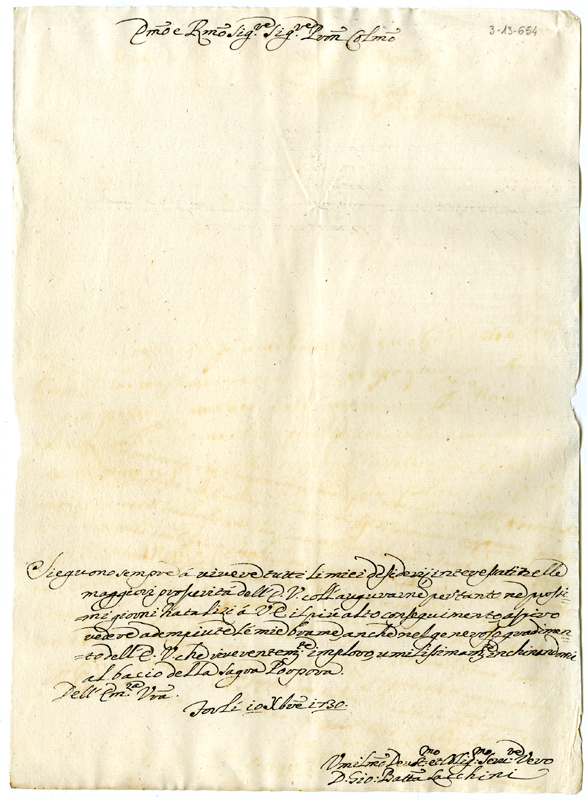 Emo e Rmo Sigre Sigre Pron Colmo
3-13-654
Sieguono sempre á vivere tutti li miei desiderij interessati nelle
maggiori prosperità dell'E.V. coll'augurarne pertanto ne prossi-
mi giorni Natalizi á V.E. il più alto conseguimento aspiro
vedere adempiute le mie brame anche nel generoso gradimen-
=to dell'E.V. che reverentemte imploro, umilissimamte inchinandomi
al baccio della Sagra Porpora.
Dell'Emza Vra
Forlì 10 Xbre 1730.
Umilmo Devmo et Servre Vero
D. Gio: Batta